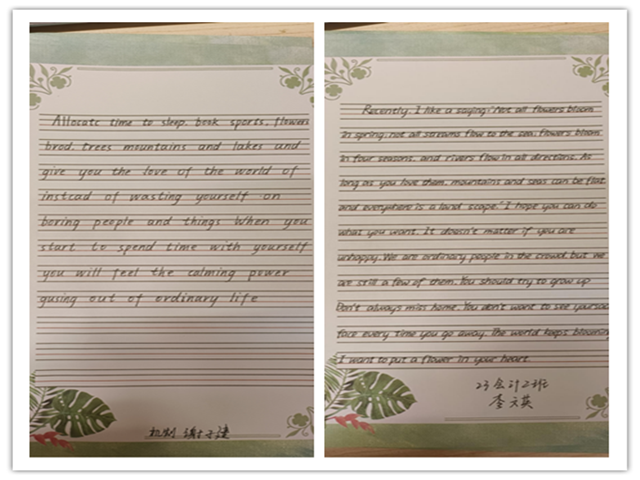 Allocatc time to sleep. book sports. flowers
brod. trees mountains and lakes and
give you the love of the world of
instcad of wasting yourself on
boring people and things When you
start to spend time with yourself
you will feel the calming power
gusing out of ordinary life
机制
Recently, I like a saying: "Not all flowers bloom
in spring, not all streams flow to the sea, flowers bloom
in four seasons, and rivers flow in all directions. As
long as you love them, mountains and seas can be flat,
and everywhere is a land scape." I hope you can do
what you want. It doesn't matter if you are
unhappy. We are ordinary people in the crowd, but we
are still a few of them. You should try to grow up
Don't always miss home. You don't want to see your sad
face every time you go away. The world keeps blowing
I want to put a flower in your heart.
23会计2班
李文英